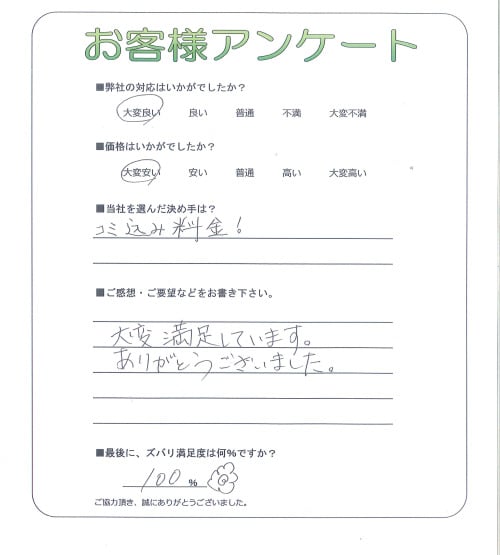 お客様アンケート
■弊社の対応はいかがでしたか?
大変良い 良い 普通 不満 大変不満
■価格はいかがでしたか?
大変安い 安い 普通 高い 大変高い
■当社を選んだ決め手は?
コミ込み料金!
■ご感想・ご要望などをお書き下さい。
大変満足しています。
ありがとうございました。
■最後に、ズバリ満足度は何%ですか?
100 %
ご協力頂き、誠にありがとうございました。